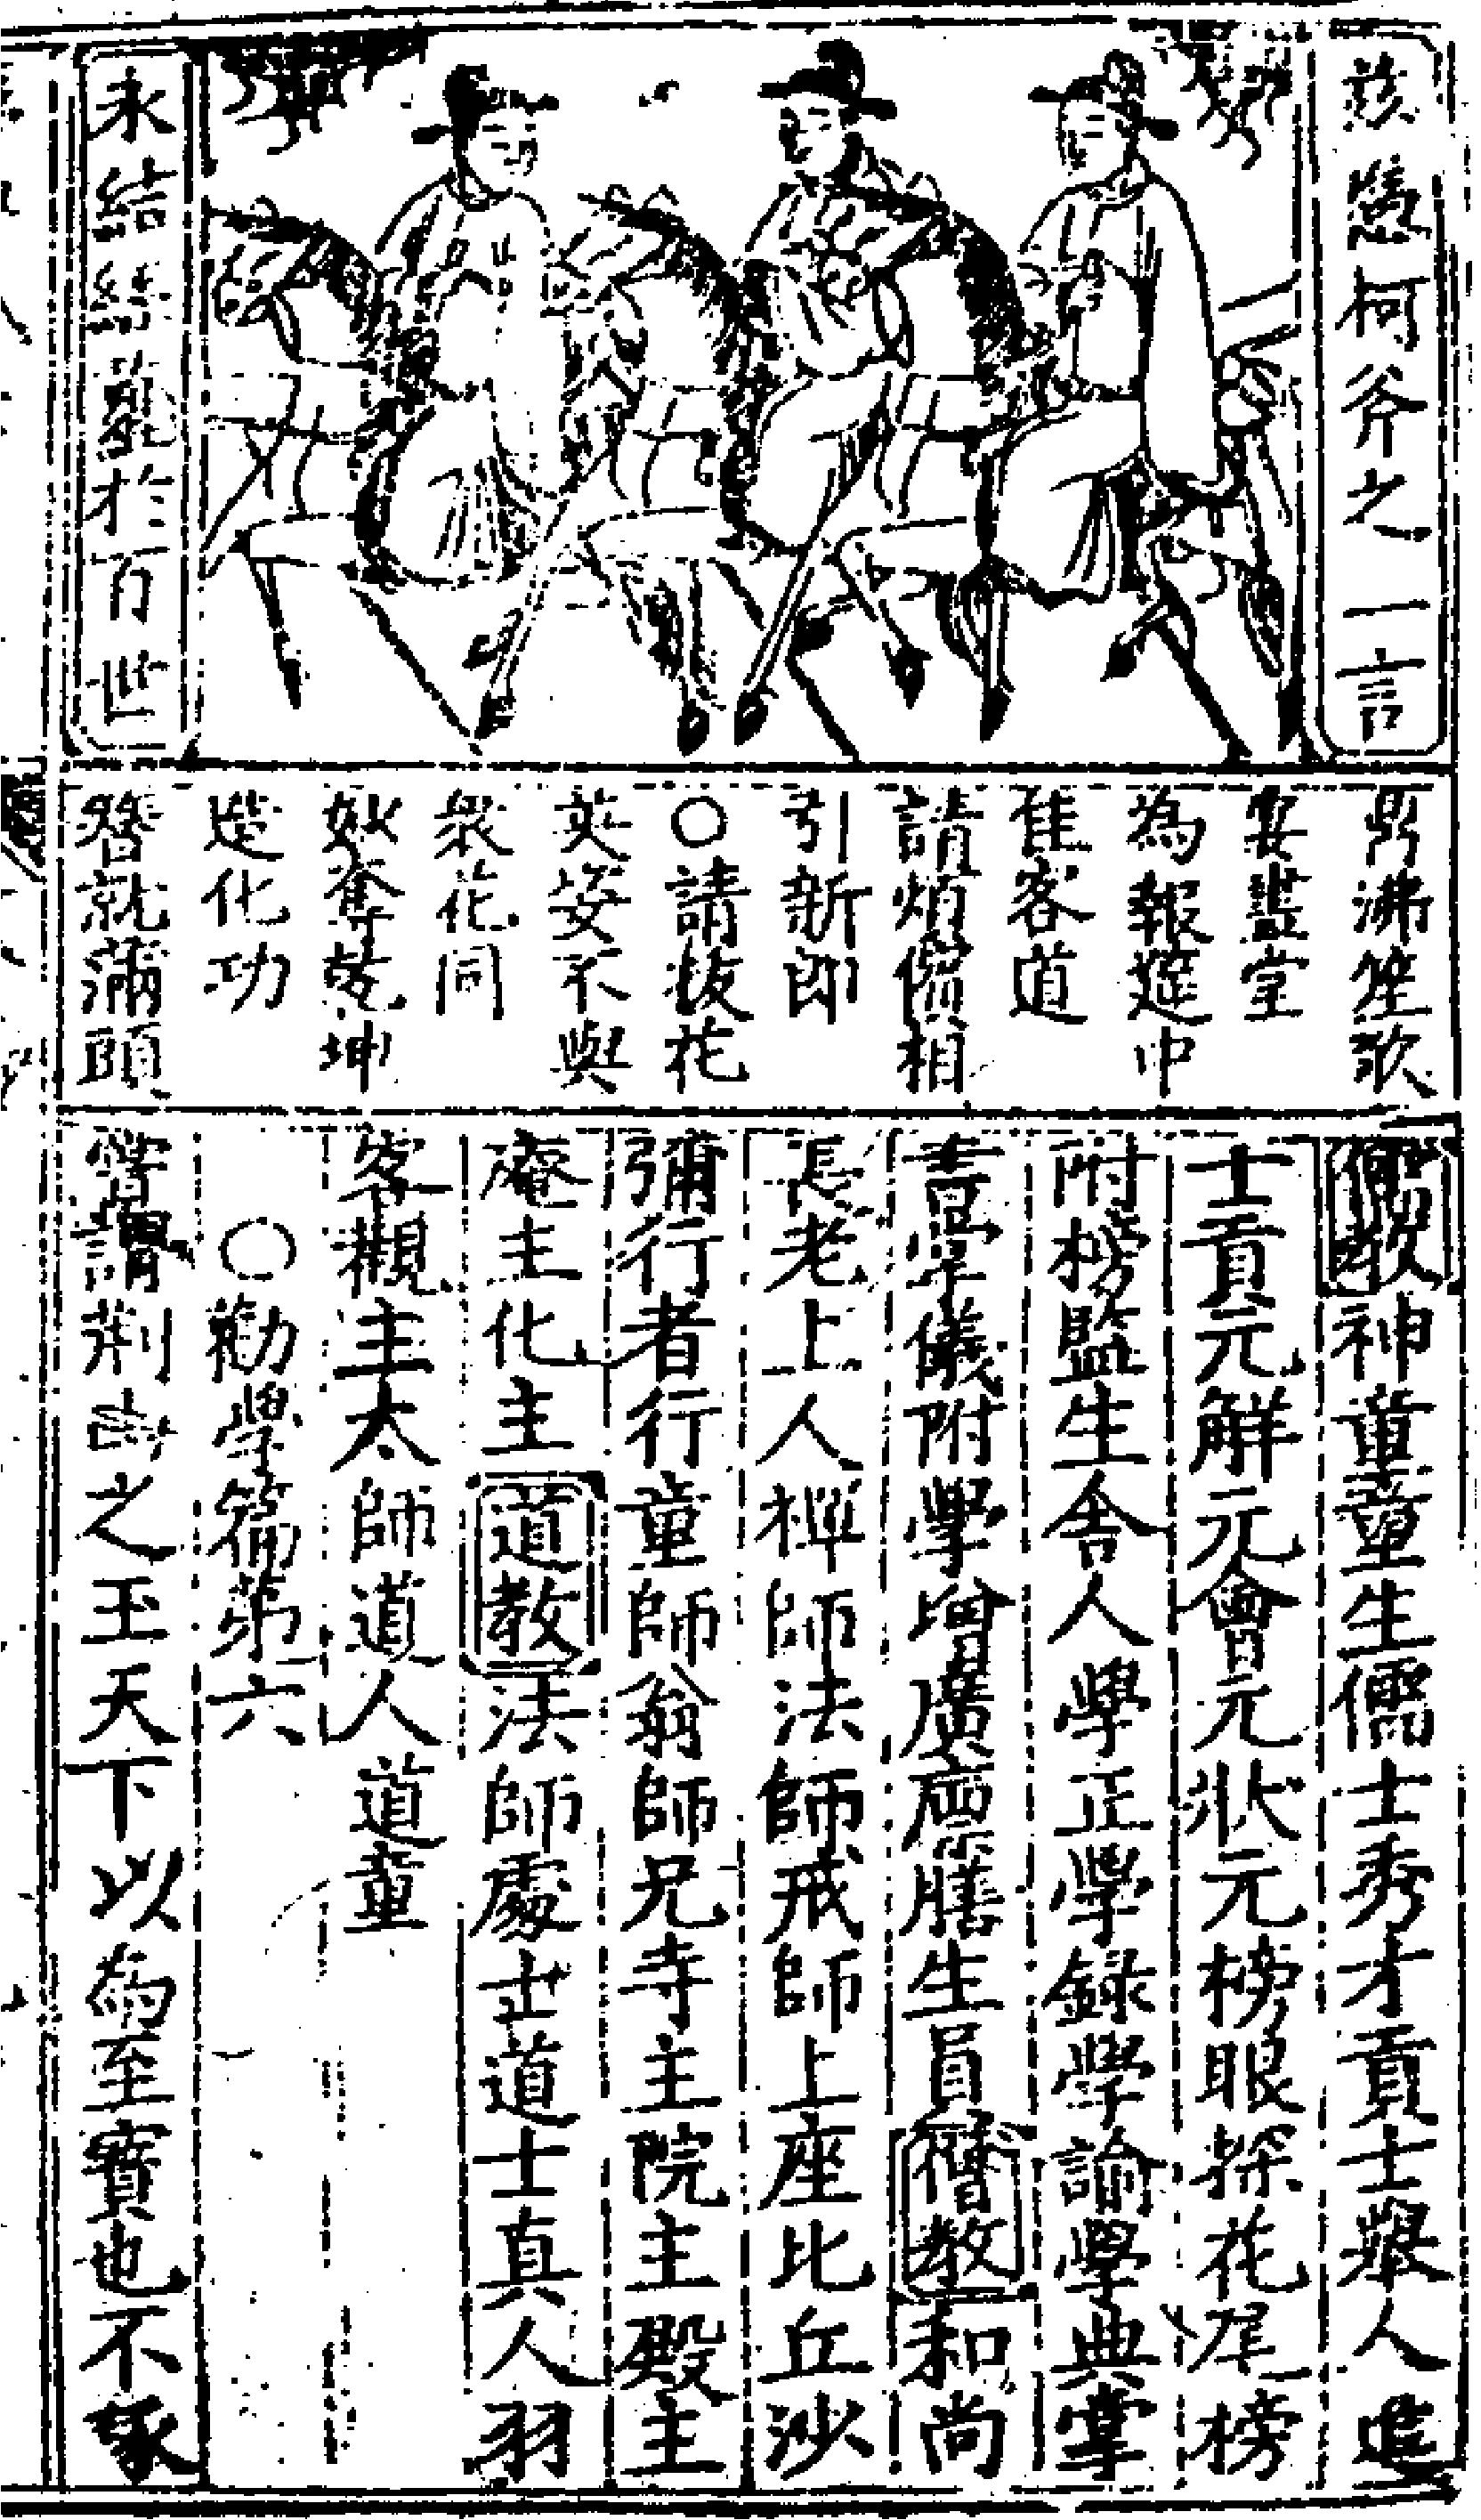 玆憑柯斧之一言
永結絲蘿於百世
鼎沸笙歌
宴畫堂
為報筵中
佳客道
請煩儐相
引新郎
○請拔花
英姿不與
衆花同
妙奪乾坤
造化功
簪就滿頭
儒教神童童生儒士秀才貢士舉人進
士貢元解元會元狀元榜眼探花尾榜
附榜監生舍人學正學録學諭學典掌
書學儀附學增廣廩膳生員僧教和尚
長老上人禪師法師戒師上座比丘沙
彌行者行童師翁師兄寺主院主殿主
庵主化主道教法師處士道士真人羽
客觀主太師道人道童
○勸學篇第六
嘗謂荆山之玉天下以為至寳也不琢